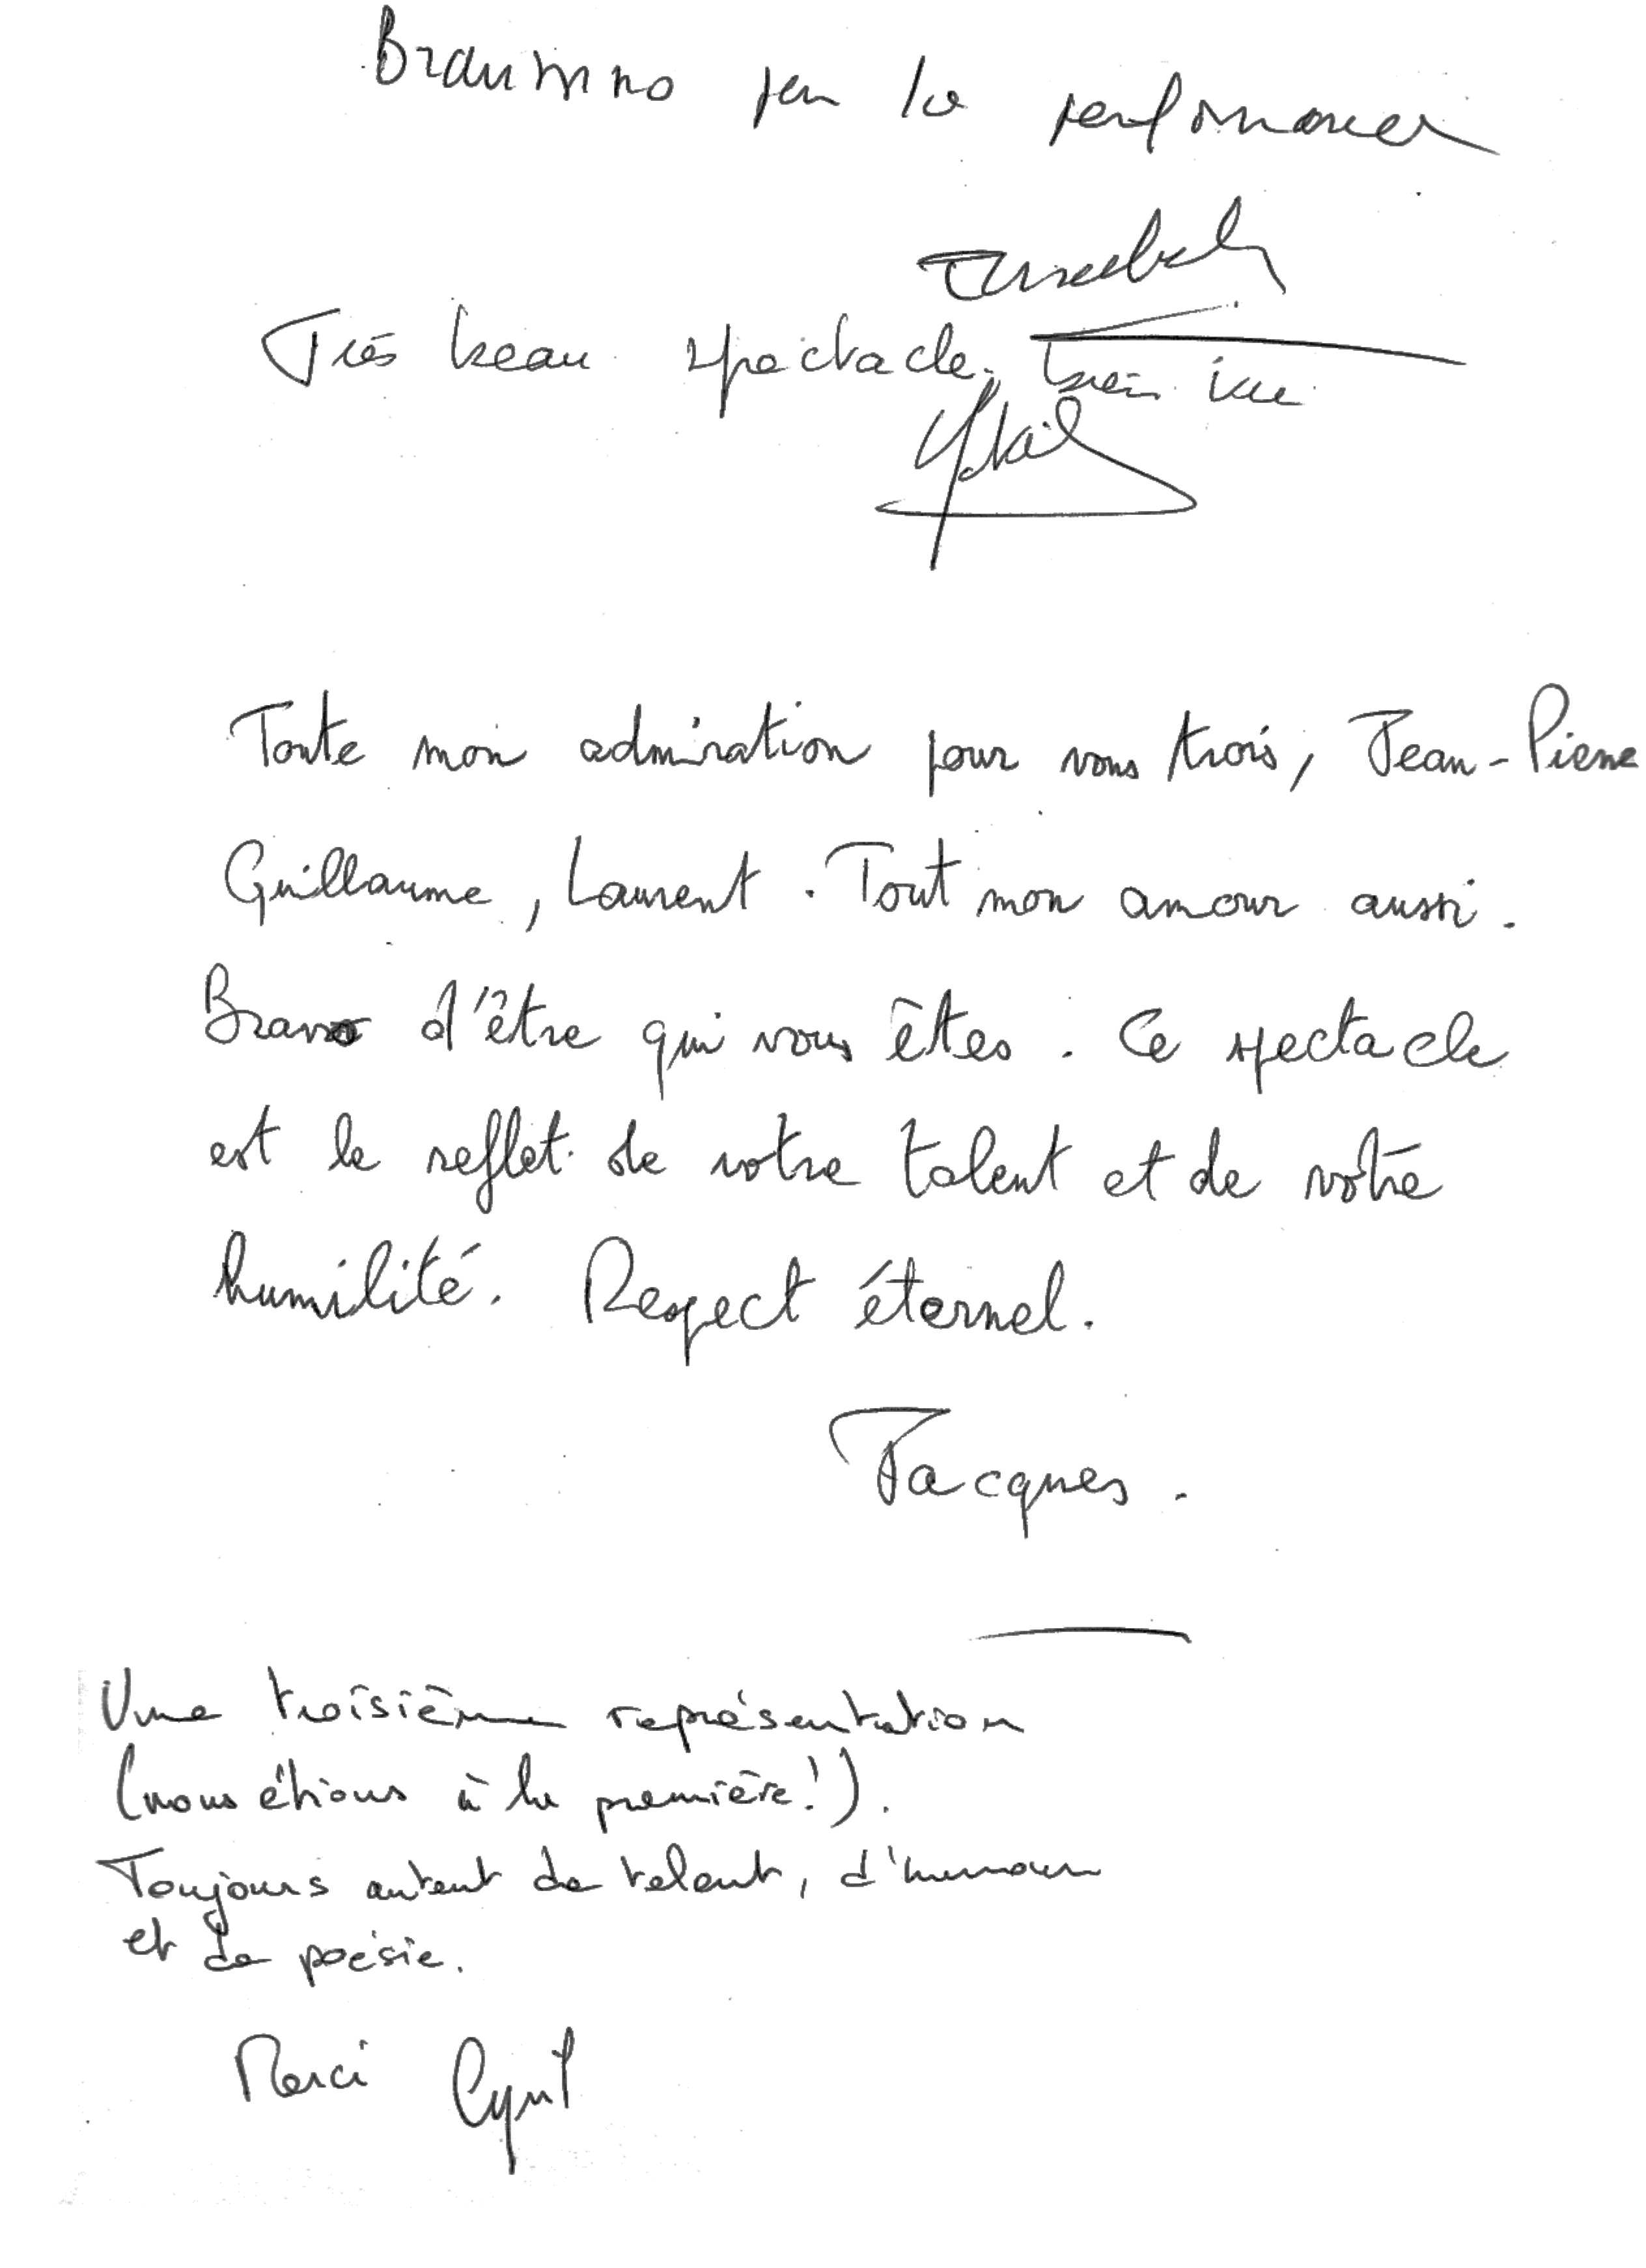 pour la performance
Très beau spectacle. bien vu
Toute mon admiration pour vous trois, Jean-Pierre
Guillaume, Laurent. Tout mon amour aussi.
Bravo d'être qui vous êtes. Ce spectacle
est le reflet de votre talent et de votre
humilité. Respect éternel.
Jacques.
Une troisième représentation
(nous étions à la première!).
Toujours autant de talent, d'humour
et de poésie.
Merci Cyril